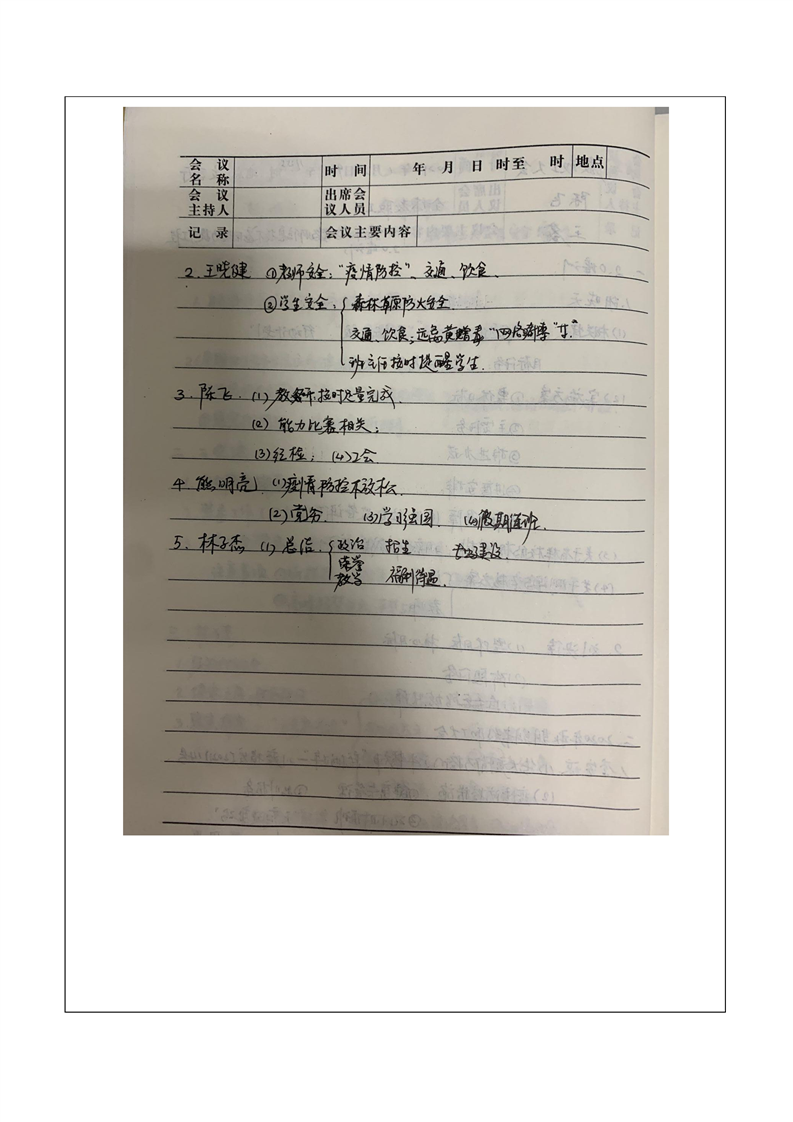 会议名称 时间 年 月 日 时至 时 地点
会议主持人 出席会议人员
记录 会议主要内容
2. 王晓健 ①老师安全:"疫情防控"、交通、饮食.
②学生安全: 森林草原防火安全.
交通、饮食;远离黄赌毒
班主任按时提醒学生.
3. 陈飞. (1) 教师按时足量完成.
(2) 能力比赛相关;
(3) 经检; (4)工会
4. 熊明亮 (1)疫情防控不放松.
(2) 党务. (3)学习强国. (4)假期值班.
5. 林子杰 (1) 总结. 政治 招生 建设.
教学 福利待遇.